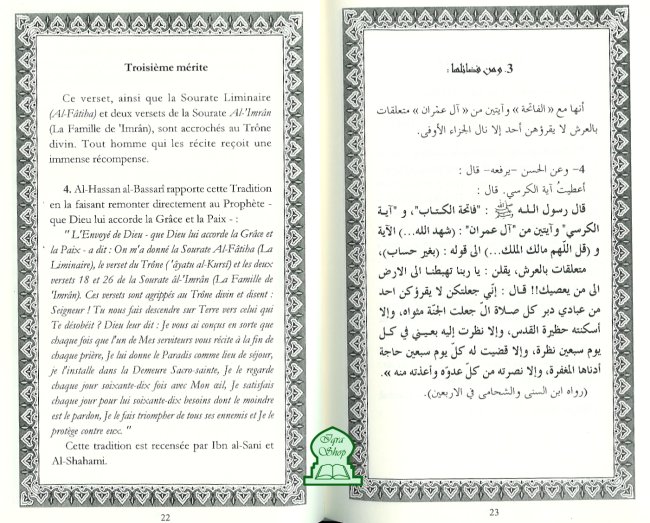 Troisième mérite
Ce verset, ainsi que la Sourate Liminaire
(Al-Fâtiha) et deux versets de la Sourate Al-'Imrân
(La Famille de 'Imrân), sont accrochés au Trône
divin. Tout homme qui les récite reçoit une
immense récompense.
4. Al-Hassan al-Bassarî rapporte cette Tradition
en la faisant remonter directement au Prophète -
que Dieu lui accorde la Grâce et la Paix - :
" L'Envoyé de Dieu - que Dieu lui accorde la Grâce et
la Paix - a dit : On m'a donné la Sourate Al-Fâtiha (La
Liminaire), le verset du Trône ('âyatu al-Kursî) et les deux
versets 18 et 26 de la Sourate âl-'Imrân (La Famille de
'Imrân). Ces versets sont agrippés au Trône divin et disent :
Seigneur ! Tu nous fais descendre sur Terre vers celui qui
Te désobéit ? Dieu leur dit : Je vous ai conçus en sorte que
chaque fois que l'un de Mes serviteurs vous récite à la fin de
chaque prière, Je lui donne le Paradis comme lieu de séjour,
je l'installe dans la Demeure Sacro-sainte, Je le regarde
chaque jour soixante-dix fois avec Mon œil, Je satisfais
chaque jour pour lui soixante-dix besoins dont le moindre
est le pardon, Je le fais triompher de tous ses ennemis et Je le
protège contre eux. "
Cette tradition est recensée par Ibn al-Sani et
Al-Shahami.
22
3. ومن فضائلها :
أنها مع « الفاتحة » وآيتين من « آل عمْران » متعلقات
بالعرش لا يقرؤهن أحد إلا نال الجزاء الأوفى.
4- وعن الحسن -يرفعه- قال :
أعطيتُ آية الكرسي. قال :
قال رسول الله ﷺ : "فاتحة الكتاب"، و "آية
الكرسي" وآيتين من "آل عمران" : (شهد الله...) الآية
و ( قل اللّهم مالك الملك...) الى قوله : (بغير حساب)،
متعلقات بالعرش، يقلن : يا ربنا تهبطنا الى الارض
الى من يعصيك!! قال : إنّي جعلتكن لا يقرؤكن احد
من عبادي دبر كل صلاة الا جعلت الجنّة مثواه، وإلا
أسكنته حظيرة القدس، وإلا نظرت إليه بعيني في كل
يوم سبعين نظرة، وإلا قضيت له كلّ يوم سبعين حاجة
أدناها المغفرة، وإلا نصرته من كلّ عدوّه وأعذته منه ».
(رواه ابن السنى والشحامى في الاربعين).
23
Iqra
Shop